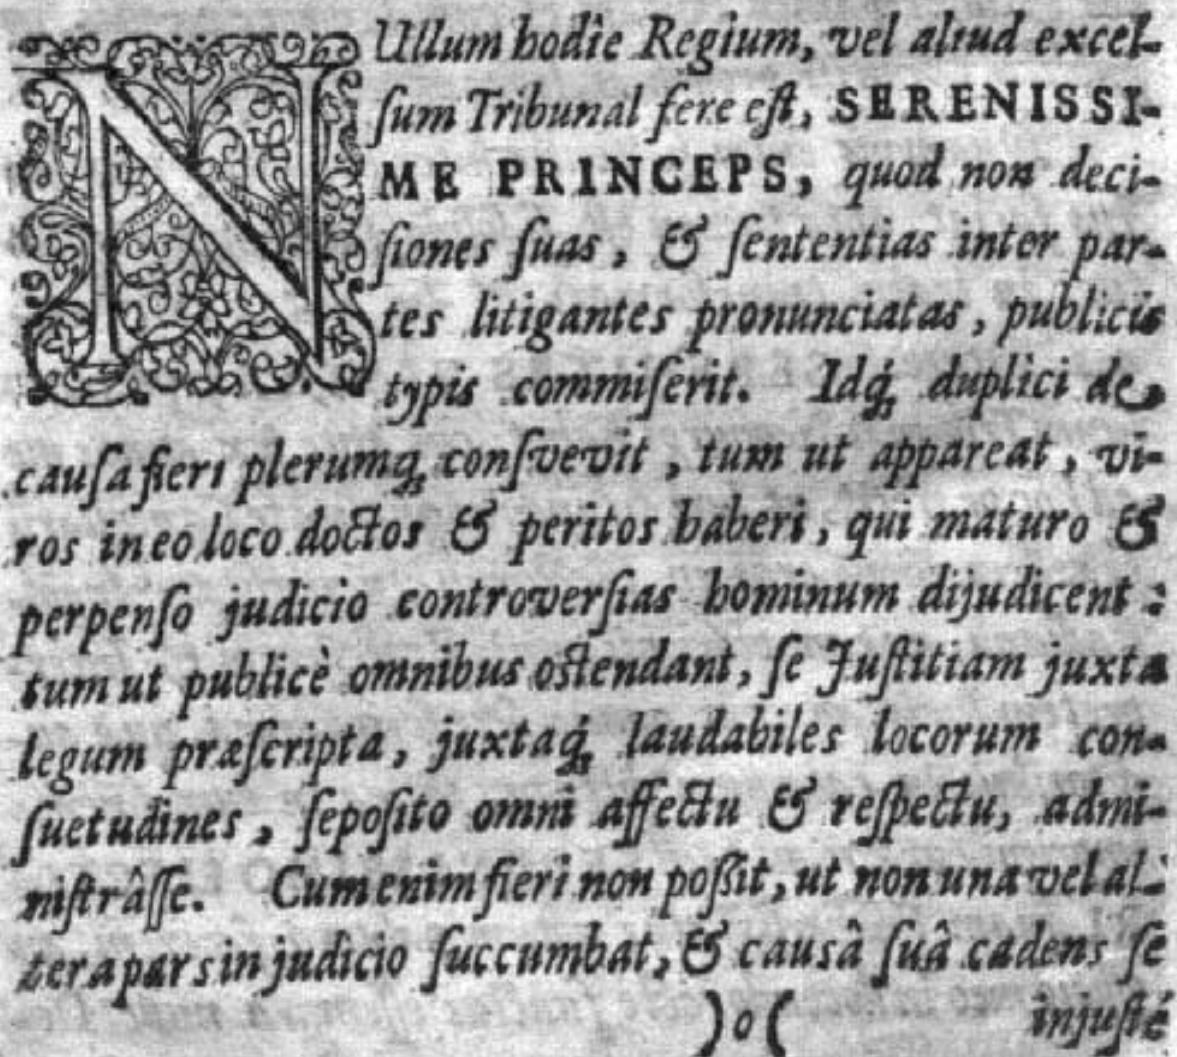 NUllum hodie Regium, vel aliud excel-
ſum Tribunal fere eſt, SERENISSI-
ME PRINCEPS, quod non deci-
ſiones ſuas, & ſententias inter par-
tes litigantes pronunciatas, publicis
typis commiſerit. Idq́; duplici de
cauſa fieri plerumq; conſvevit, tum ut appareat, vi-
ros in eo loco doctos & peritos haberi, qui maturo &
perpenſo judicio controverſias hominum dijudicent:
tum ut publicè omnibus oſtendant, ſe Juſtitiam juxta
legum præſcripta, juxtaq́; laudabiles locorum con-
ſuetudines, ſepoſito omni affectu & reſpectu, admi-
niſtrâſſe. Cum enim fieri non poſſit, ut non una vel al-
tera pars in judicio ſuccumbat, & causâ ſuâ cadens ſe
)o( injuſté